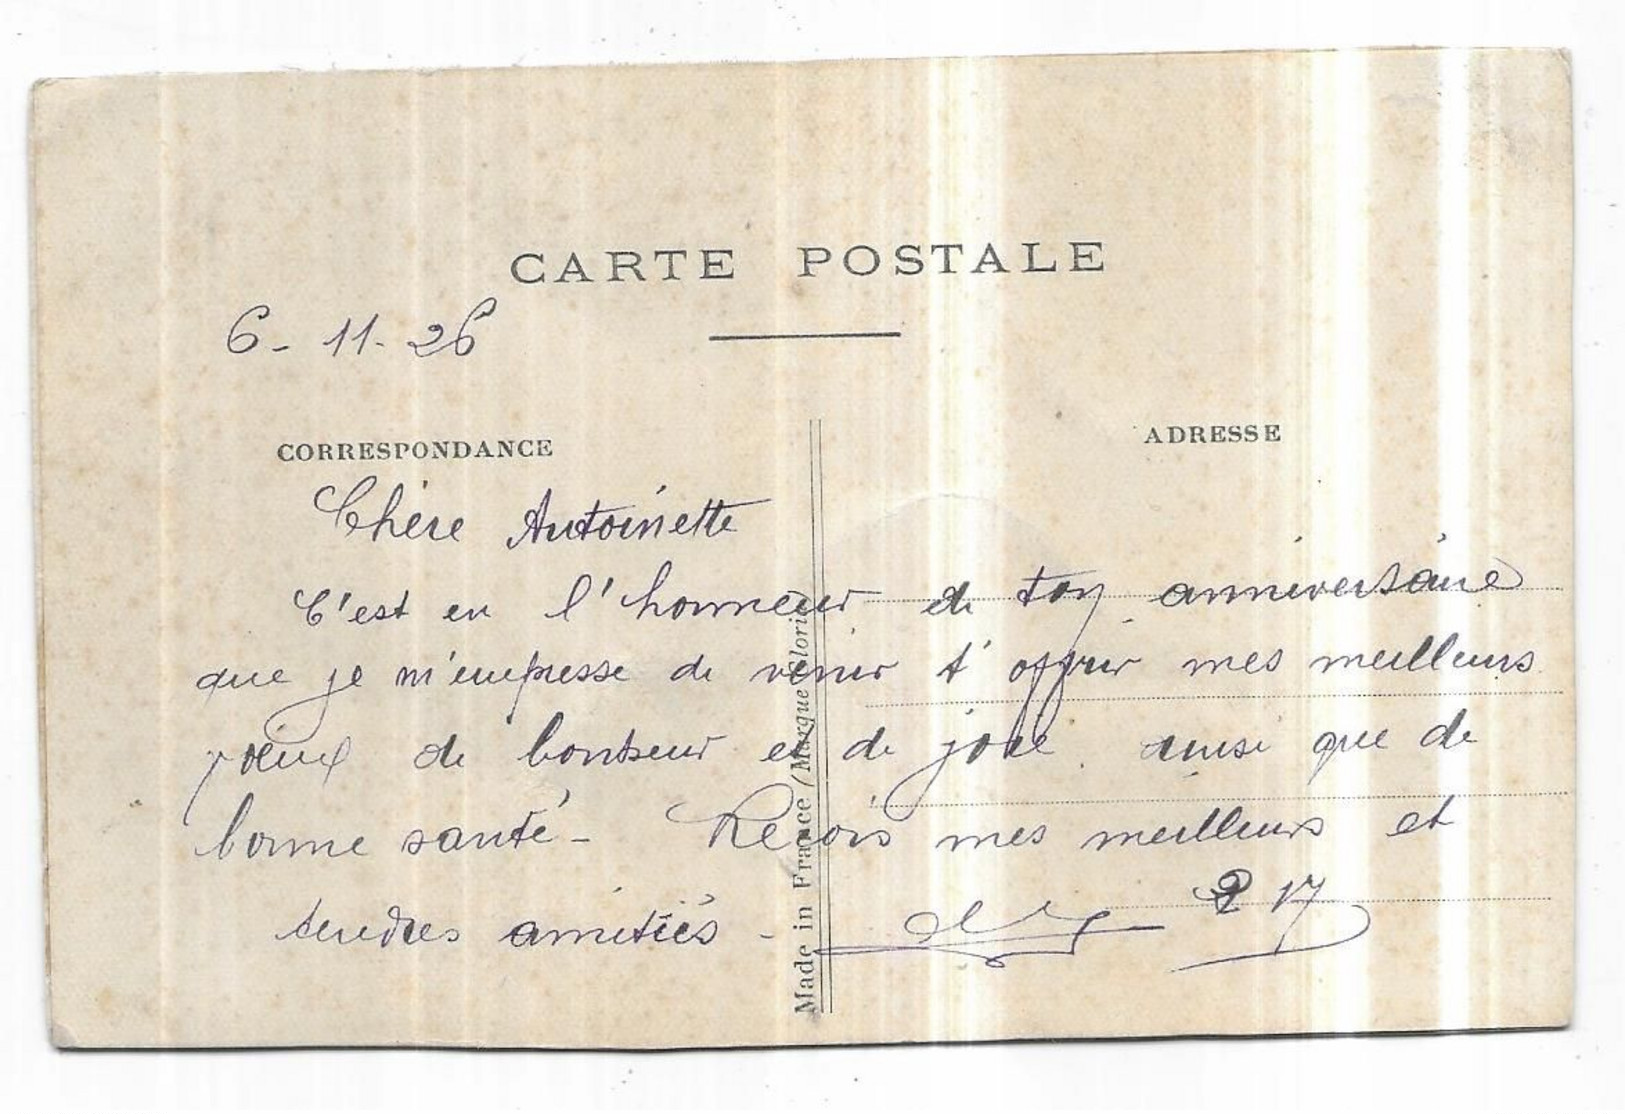 CARTE POSTALE
6 - 11 - 26
CORRESPONDANCE
ADRESSE
Chère Antoinette
C'est en l'honneur de ton anniversaire
que je m'empresse de venir t'offrir mes meilleurs
vœux de bonheur et de joie ainsi que de
bonne santé - Reçois mes meilleurs et
tendres amitiés -
17
Made in France (Marque Gloria